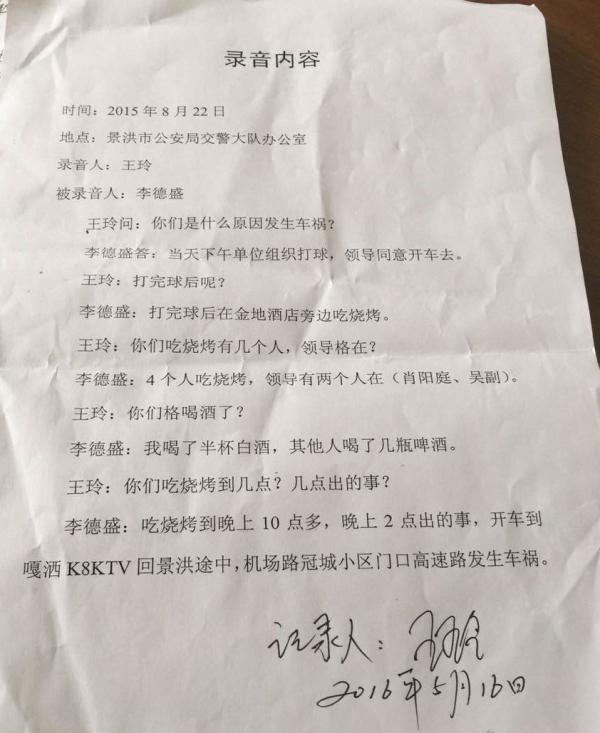 录音内容
时间：2015 年 8 月 22 日
地点：景洪市公安局交警大队办公室
录音人：王玲
被录音人：李德盛
王玲问：你们是什么原因发生车祸？
李德盛答：当天下午单位组织打球，领导同意开车去。
王玲：打完球后呢？
李德盛：打完球后在金地酒店旁边吃烧烤。
王玲：你们吃烧烤有几个人，领导格在？
李德盛：4 个人吃烧烤，领导有两个人在（肖阳庭、吴副）。
王玲：你们格喝酒了？
李德盛：我喝了半杯白酒，其他人喝了几瓶啤酒。
王玲：你们吃烧烤到几点？几点出的事？
李德盛：吃烧烤到晚上 10 点多，晚上 2 点出的事，开车到
嘎洒 K8KTV 回景洪途中，机场路冠城小区门口高速路发生车祸。
记录人：王玲
2016年5月16日